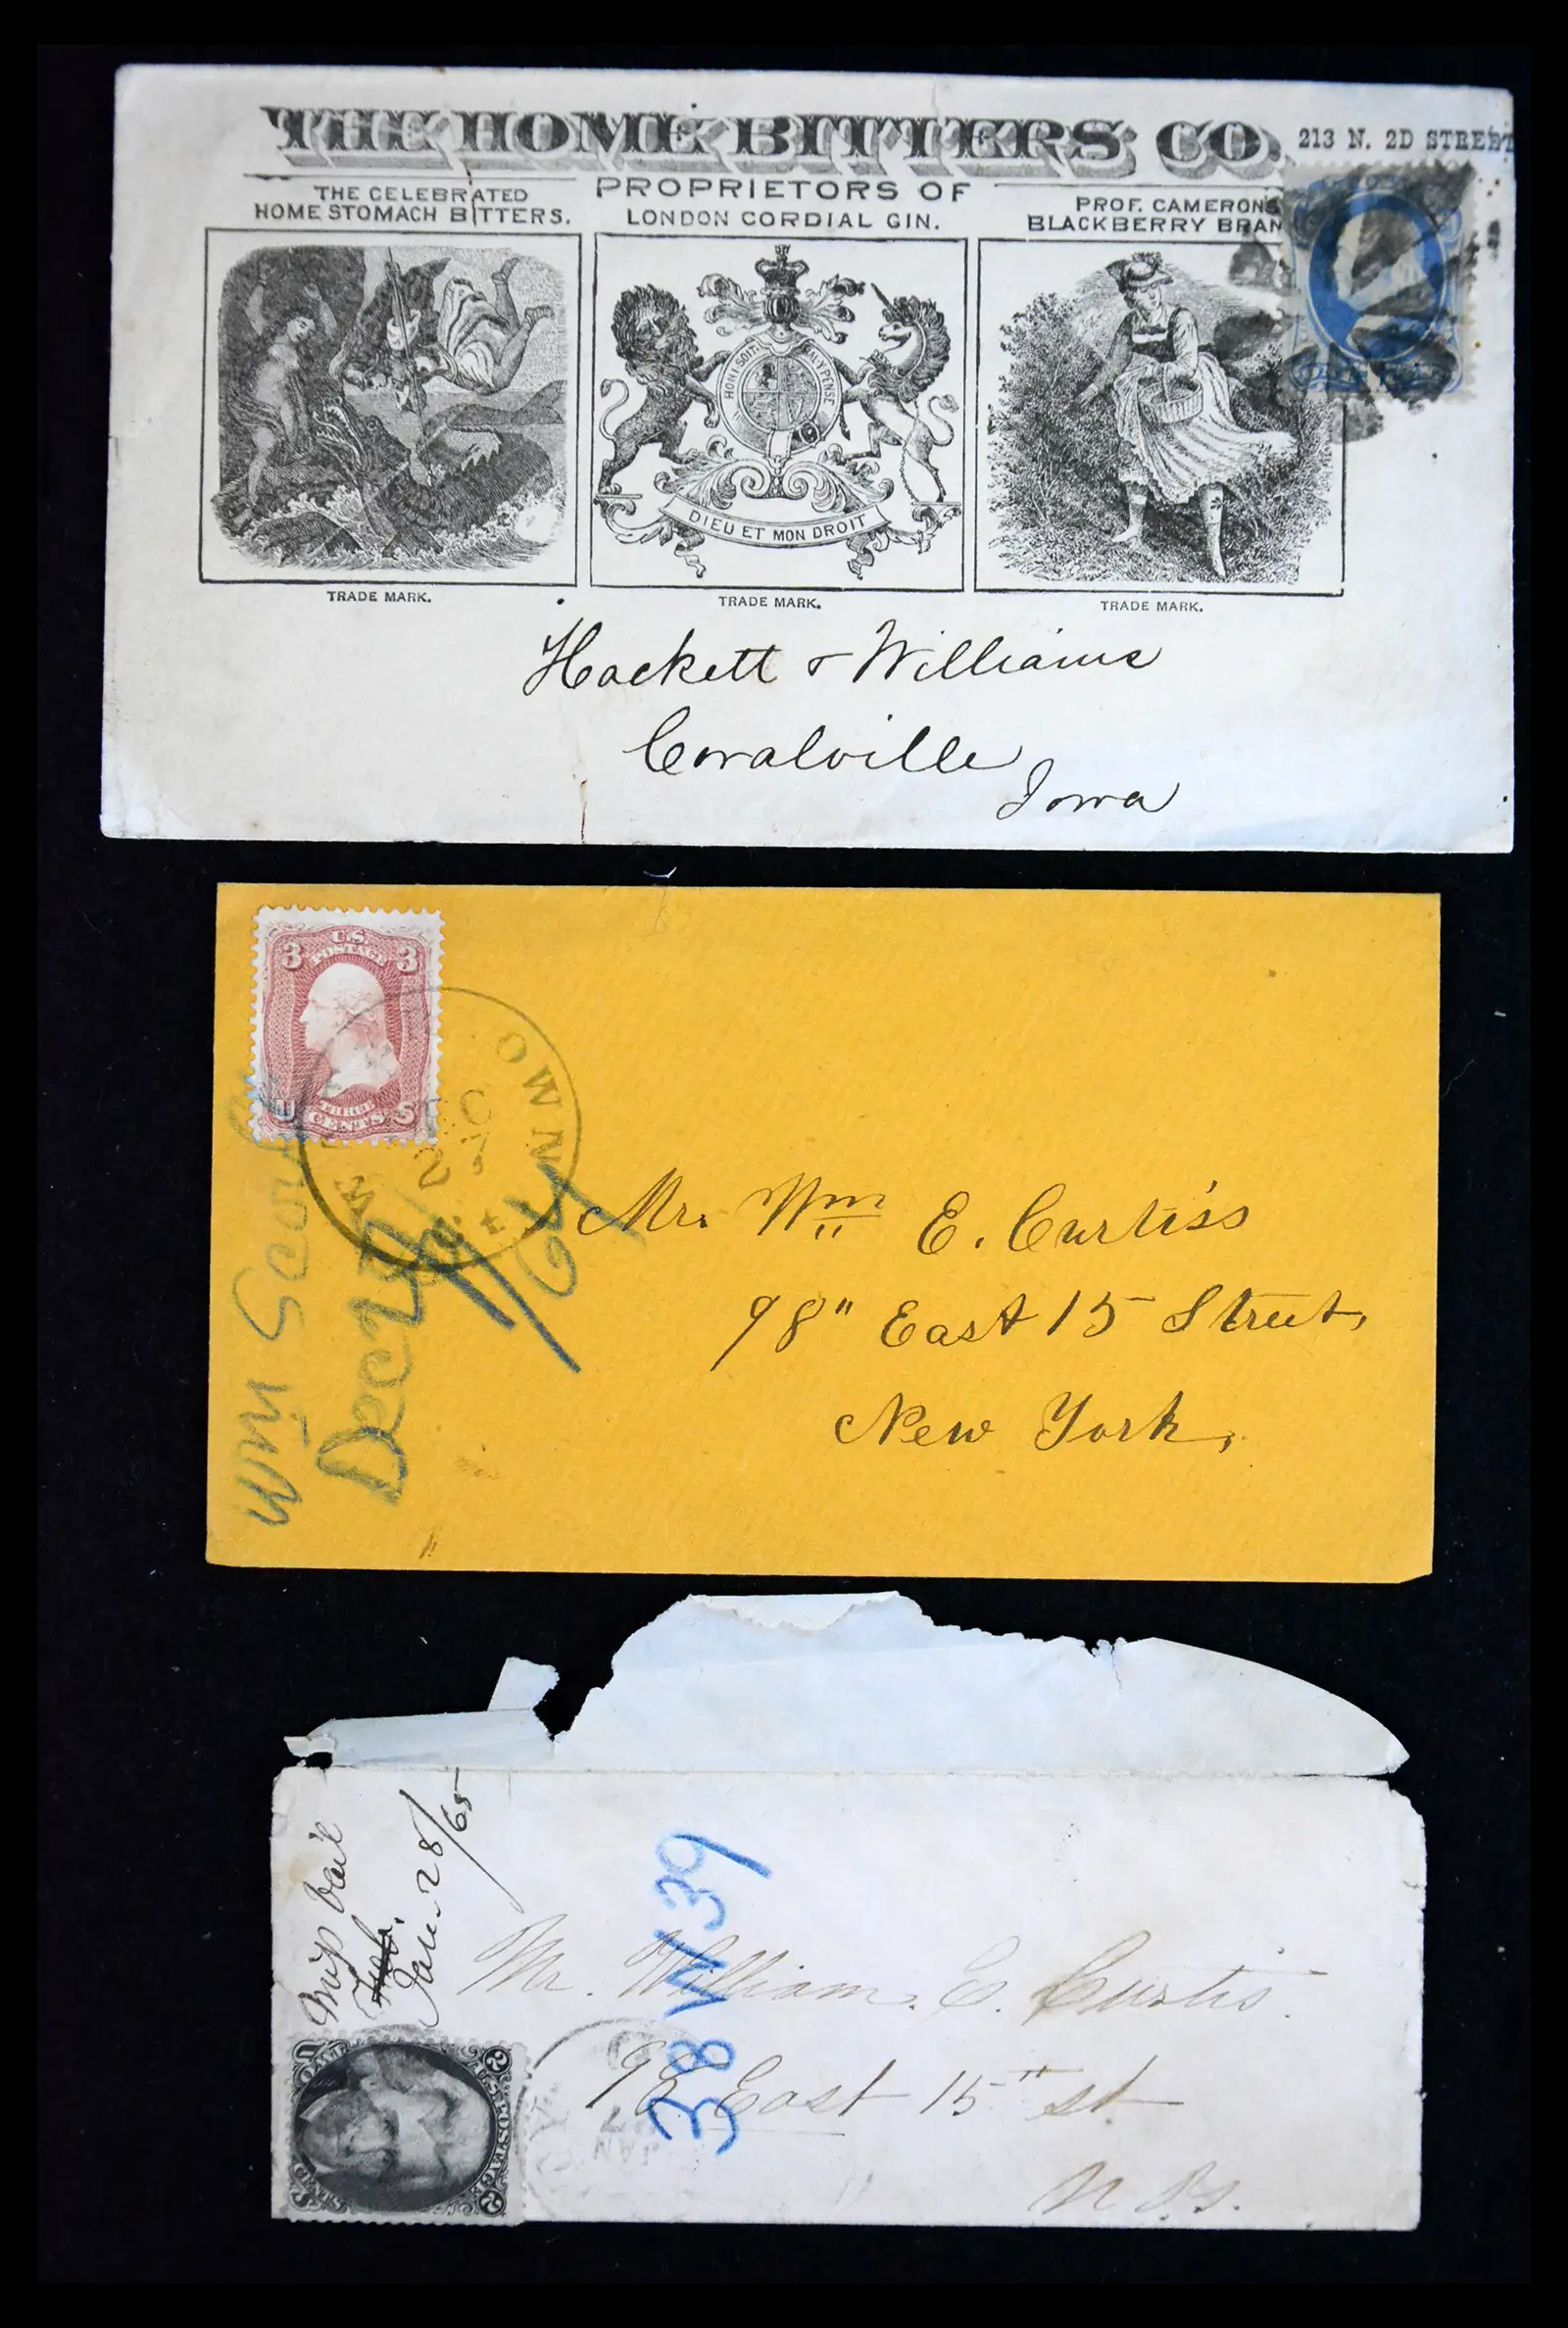 THE HOME BITTERS CO.
213 N. 2D STREET
THE CELEBRATED
HOME STOMACH BITTERS.
PROPRIETORS OF
LONDON CORDIAL GIN.
PROF. CAMERON'S
BLACKBERRY BRAN
HONI SOIT MAL Y PENSE
DIEU ET MON DROIT
TRADE MARK.
TRADE MARK.
TRADE MARK.
Hackett & Williams
Coralville
Iowa
U.S.
POSTAGE
3 3
THREE
CENTS
U S
27
Wm
Dec
Mr. Wm E. Curtiss
98" East 15 Street,
New York,
Vail
Jan. 28/65
38 W 39
Mr. William E. Curtis.
98 East 15" st
N. Y.
JAN
U.S. POSTAGE
2 2
CENTS